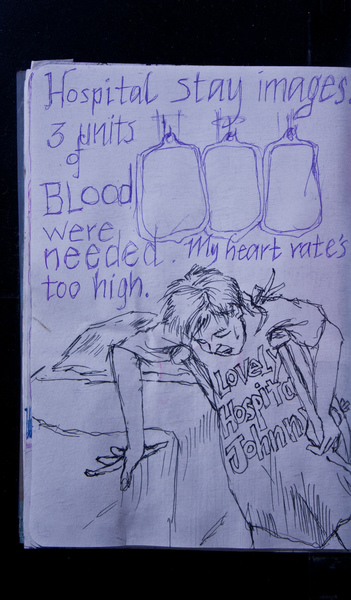 Hospital stay images.
3 units
of
BLOOD
were
needed. My heart rate's
too high.
LOVELY
Hospital
Johnny